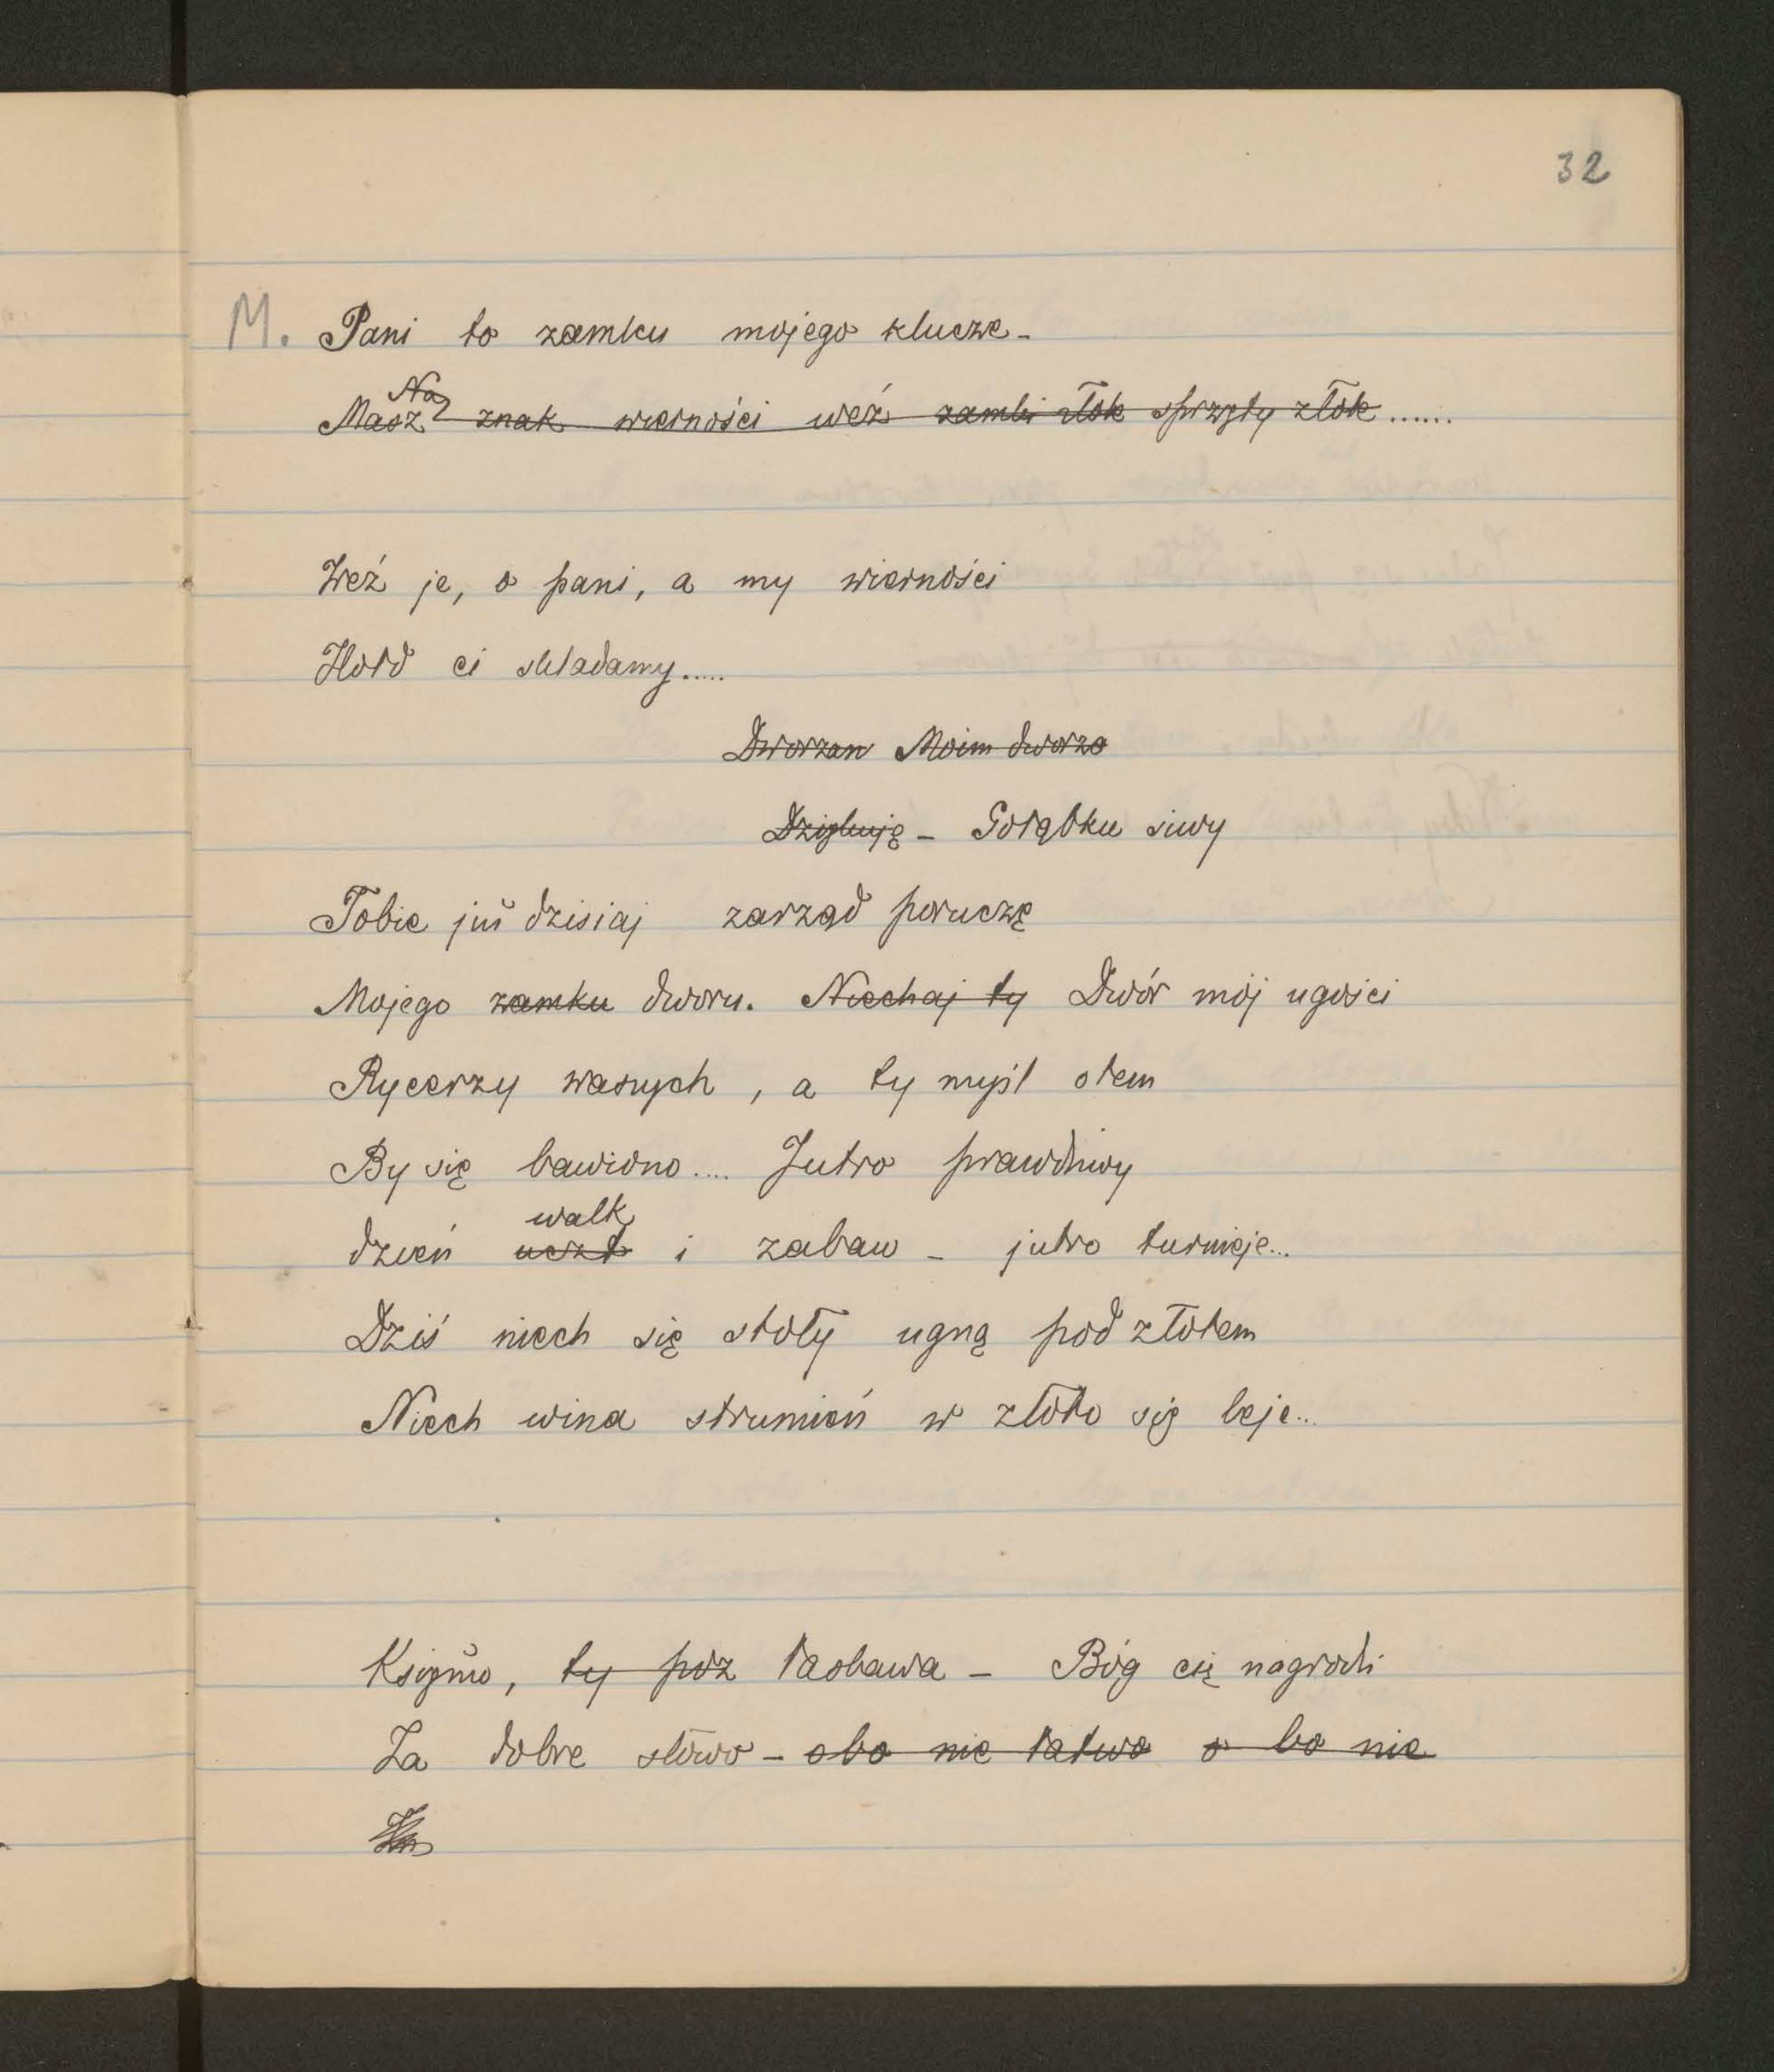 32
M. Pani to zamku mojego klucze -
Na
Masz znak wierności weź zamku złote sprzęty złote ......
Weź je, o pani, a my wierności
Hołd ci składamy.....
Dworzan Moim dworzo
Dziękuję - Gołąbku siwy
Tobie już dzisiaj zarząd poruczę
Mojego zamku dworu. Niechaj ty Dwór mój ugości
Rycerzy waszych, a ty myśl otem
By się bawiono.... Jutro prawdziwy
walk
dzień uczt i zabaw - jutro turnieje...
Dziś niech się stoły ugną pod złotem
Niech wina strumień w złoto się leje...
Księżno, ty poz łaskawa - Bóg cię nagrodzi
Za dobre słowo - obo nie łatwo o bo nie